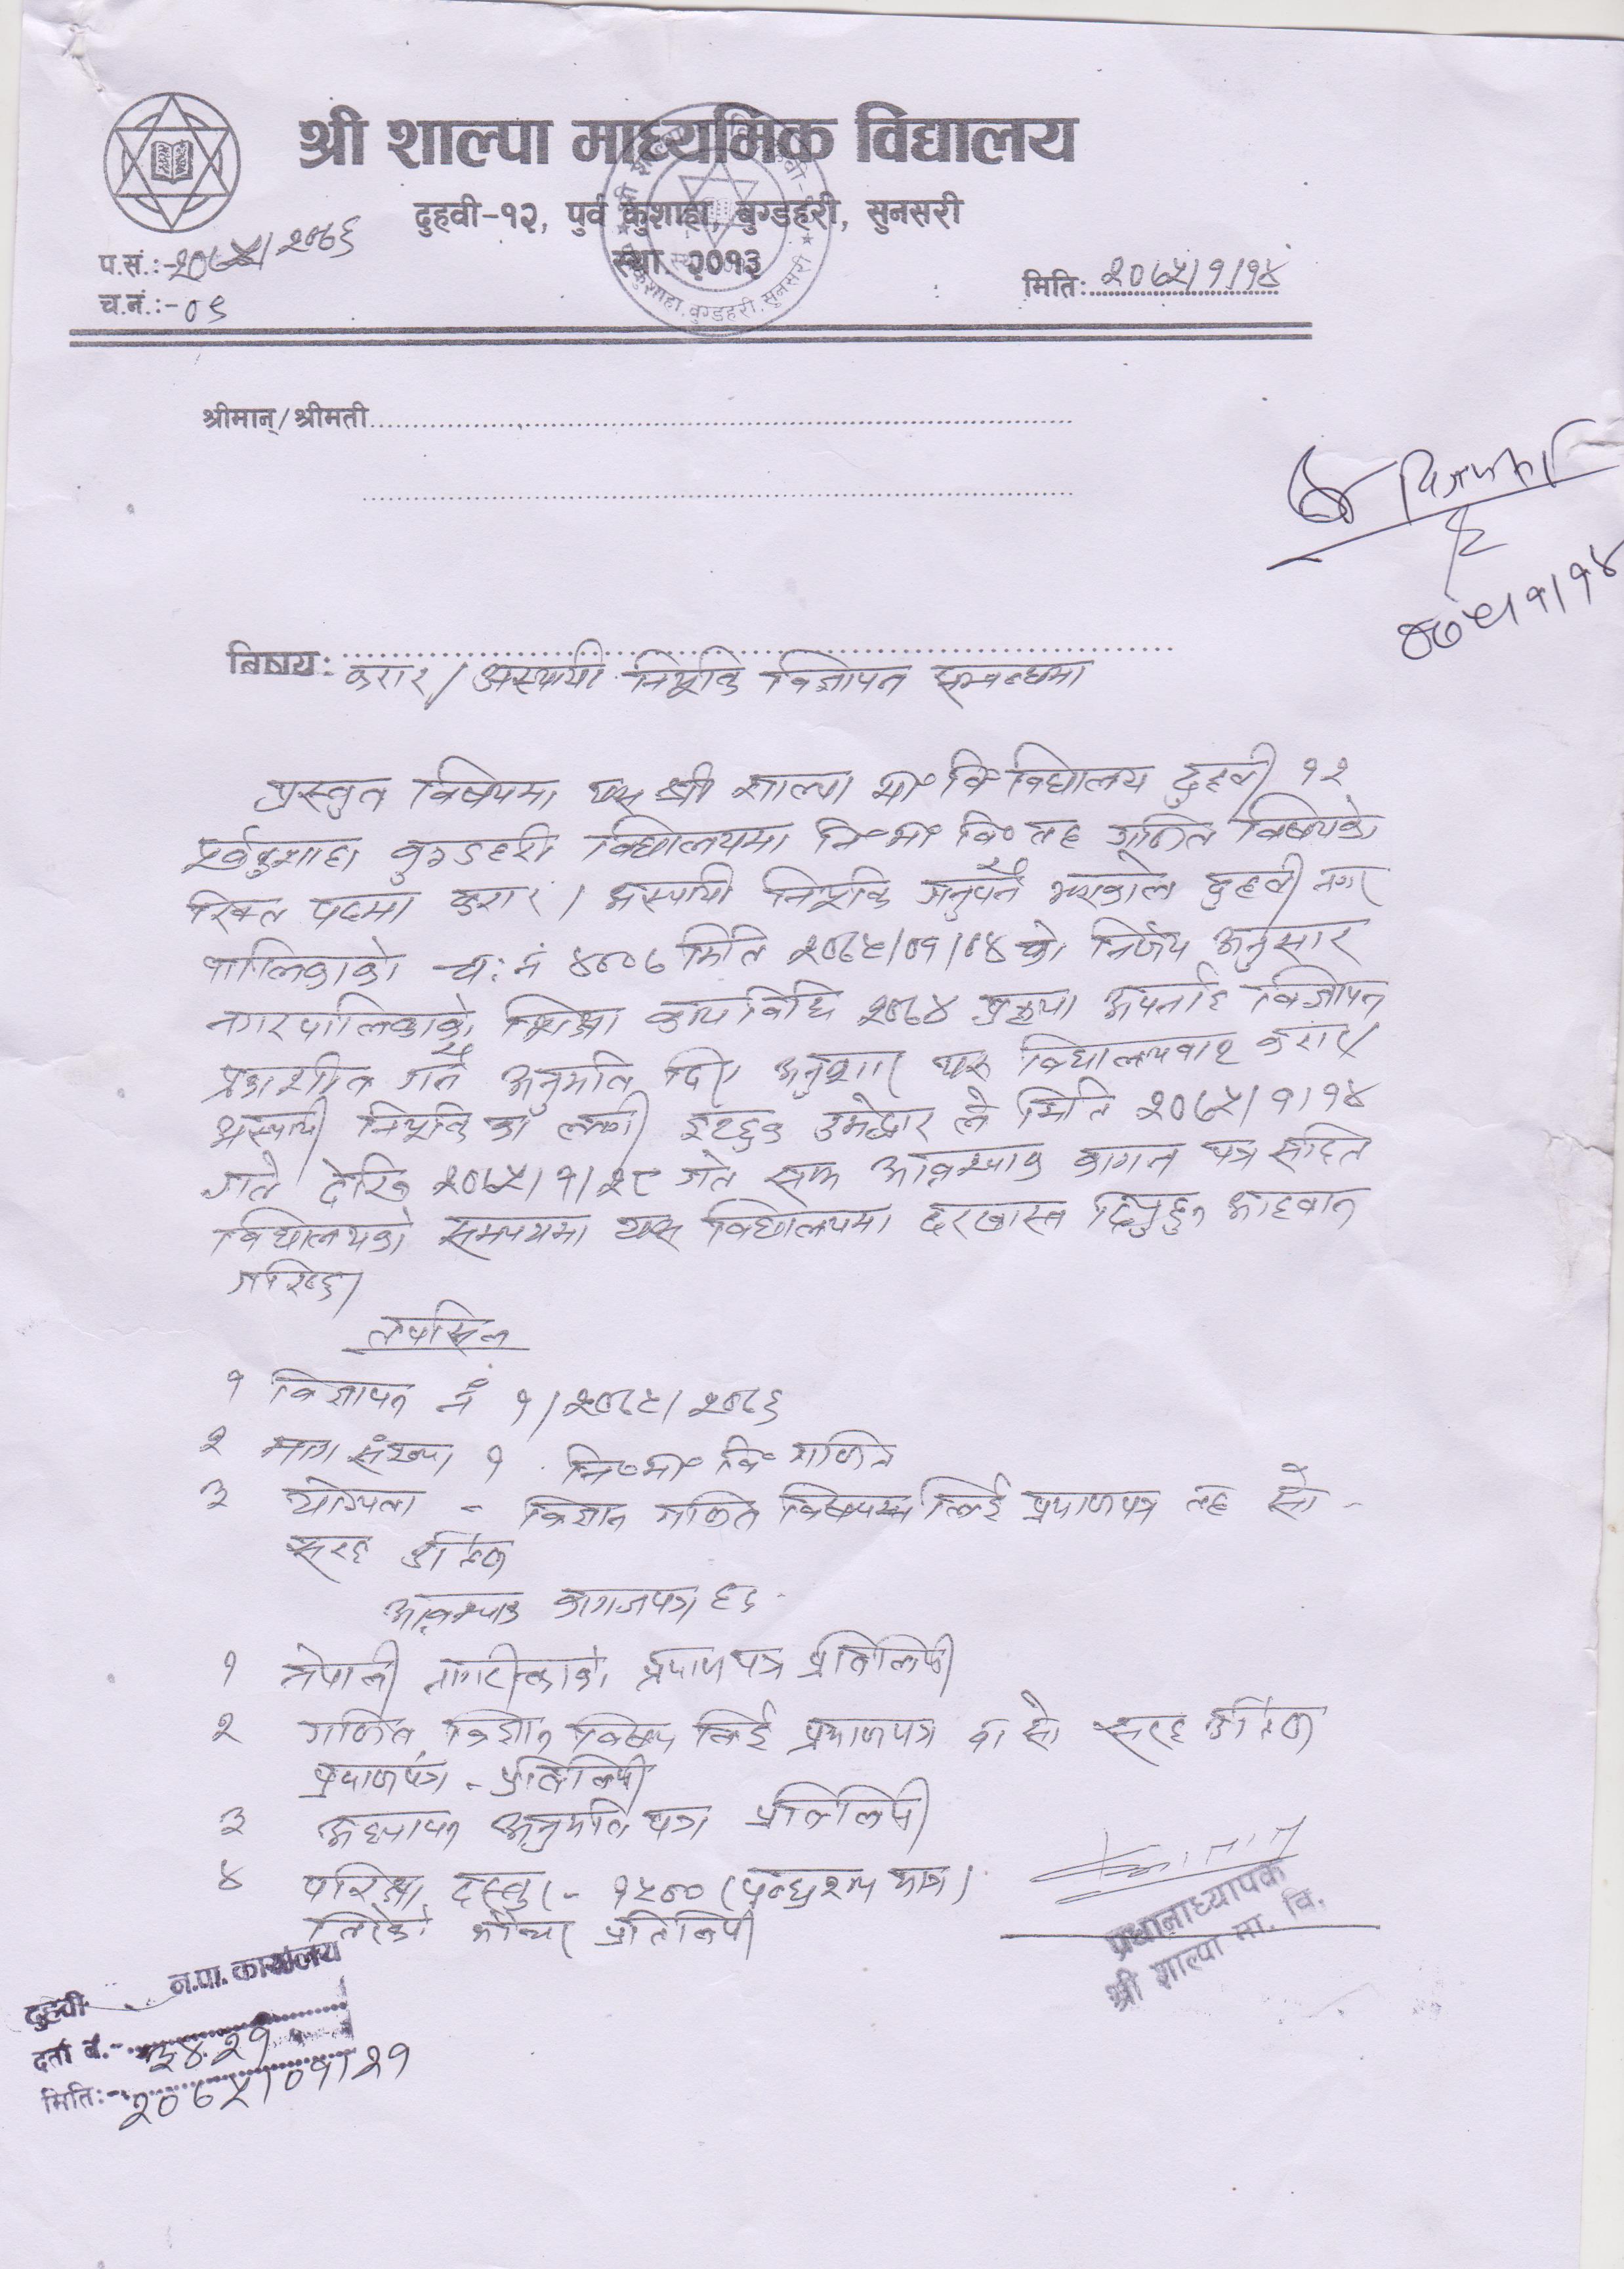 श्री शाल्पा माध्यमिक विद्यालय
दुहवी-१२, पुर्व कुशाहा, बुग्डहरी, सुनसरी
स्था. २०१३
प.सं.:-२०७५/२०७६
च.नं.:-०९
मिति: २०७५/१/१४
श्रीमान्/श्रीमती
२०७५/१/१४
विषय: करार/अस्थायी नियुक्ति विज्ञापन सम्बन्धमा
प्रस्तुत विषयमा यस श्री शाल्पा मा॰ वि॰ विद्यालय दुहवी १२
पूर्वकुशाहा बुग्डहरी विद्यालयमा नि॰ मा॰ वि॰ तह गणित विषयको
रिक्त पदमा करार / अस्थायी नियुक्ति गर्नुपर्ने भएकोले दुहवी नगर
पालिकाको च: नं ४००७ मिति २०७५/०१/०४ को निर्णय अनुसार
नगरपालिकाको शिक्षा कार्यविधि २०७४ प्रकृया अपनाई विज्ञापन
प्रकाशीत गर्ने अनुमति दिए अनुसार यस विद्यालयबाट करार/
अस्थायी नियुक्तिका लागी इच्छुक उमेद्वार ले मिति २०७५/१/१४
गते देखि २०७५/१/२८ गते सम्म आवश्याक कागज पत्र सहित
विद्यालयको समयमा यस विद्यालयमा दरखास्त दिनुहुन आहवान
गरिन्छ।
तपसिल
१ विज्ञापन नं १/२०७५/२०७६
२ माग संख्या १ नि॰मा॰ वि॰ गणित
३ योग्यता - विज्ञान गणित विषयमा लिई प्रमाणपत्र तह सो -
सरह उर्तिण
आवश्याक कागजपत्र हरु
१ नेपाली नागरीकताको प्रमाणपत्र प्रतिलिपी
२ गणित विज्ञान विषय लिई प्रमाणपत्र वा सो सरह उर्तिण
प्रमाणपत्र - प्रतिलिपी
३ अध्यापन अनुमति पत्र प्रतिलिपी
४ परिक्षा दस्तुर - १५०० (पन्ध्रशय मात्र)
तिरेको भौचर प्रतिलिपी
प्रधानाध्यापक
श्री शाल्पा मा. वि.
दुहवी न.पा. कार्यालय
दर्ता नं.- ३४२१
मिति:- २०७५/०१/२१